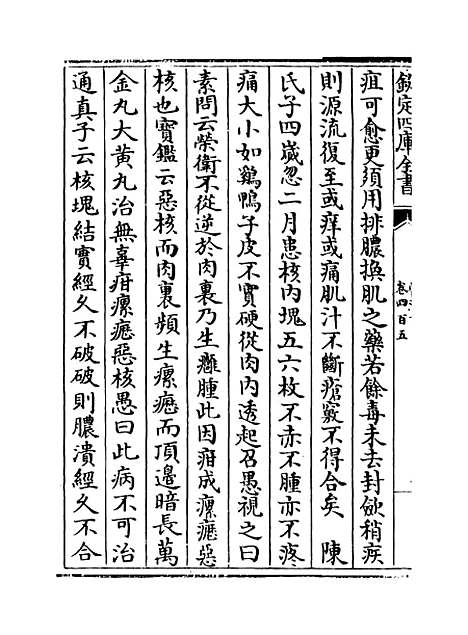 欽定四庫全書
卷四百五
疽可愈更須用排膿換肌之藥若餘毒未去封歛稍疾
則源流復至或痒或痛肌汁不斷瘡竅不得合矣　陳
氏子四歲忽二月患核内塊五六枚不赤不腫亦不疼
痛大小如鷄鴨子皮不實硬從肉内透起召愚視之曰
素問云榮衛不從逆於肉裏乃生癰腫此因疳成瘰癧惡
核也寳鑑云惡核而肉裏頻生瘰癧而頂邉暗長萬
金丸大黄丸治無辜疳瘰癧惡核愚曰此病不可治
通真子云核塊結實經久不破破則膿潰經久不合